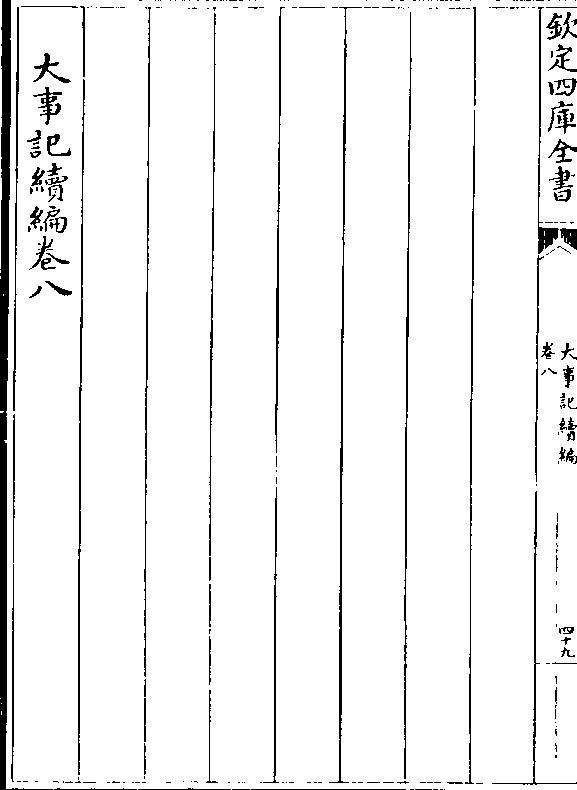 欽定四庫全書
大事記續編
卷八
四十九
大事記續編卷八